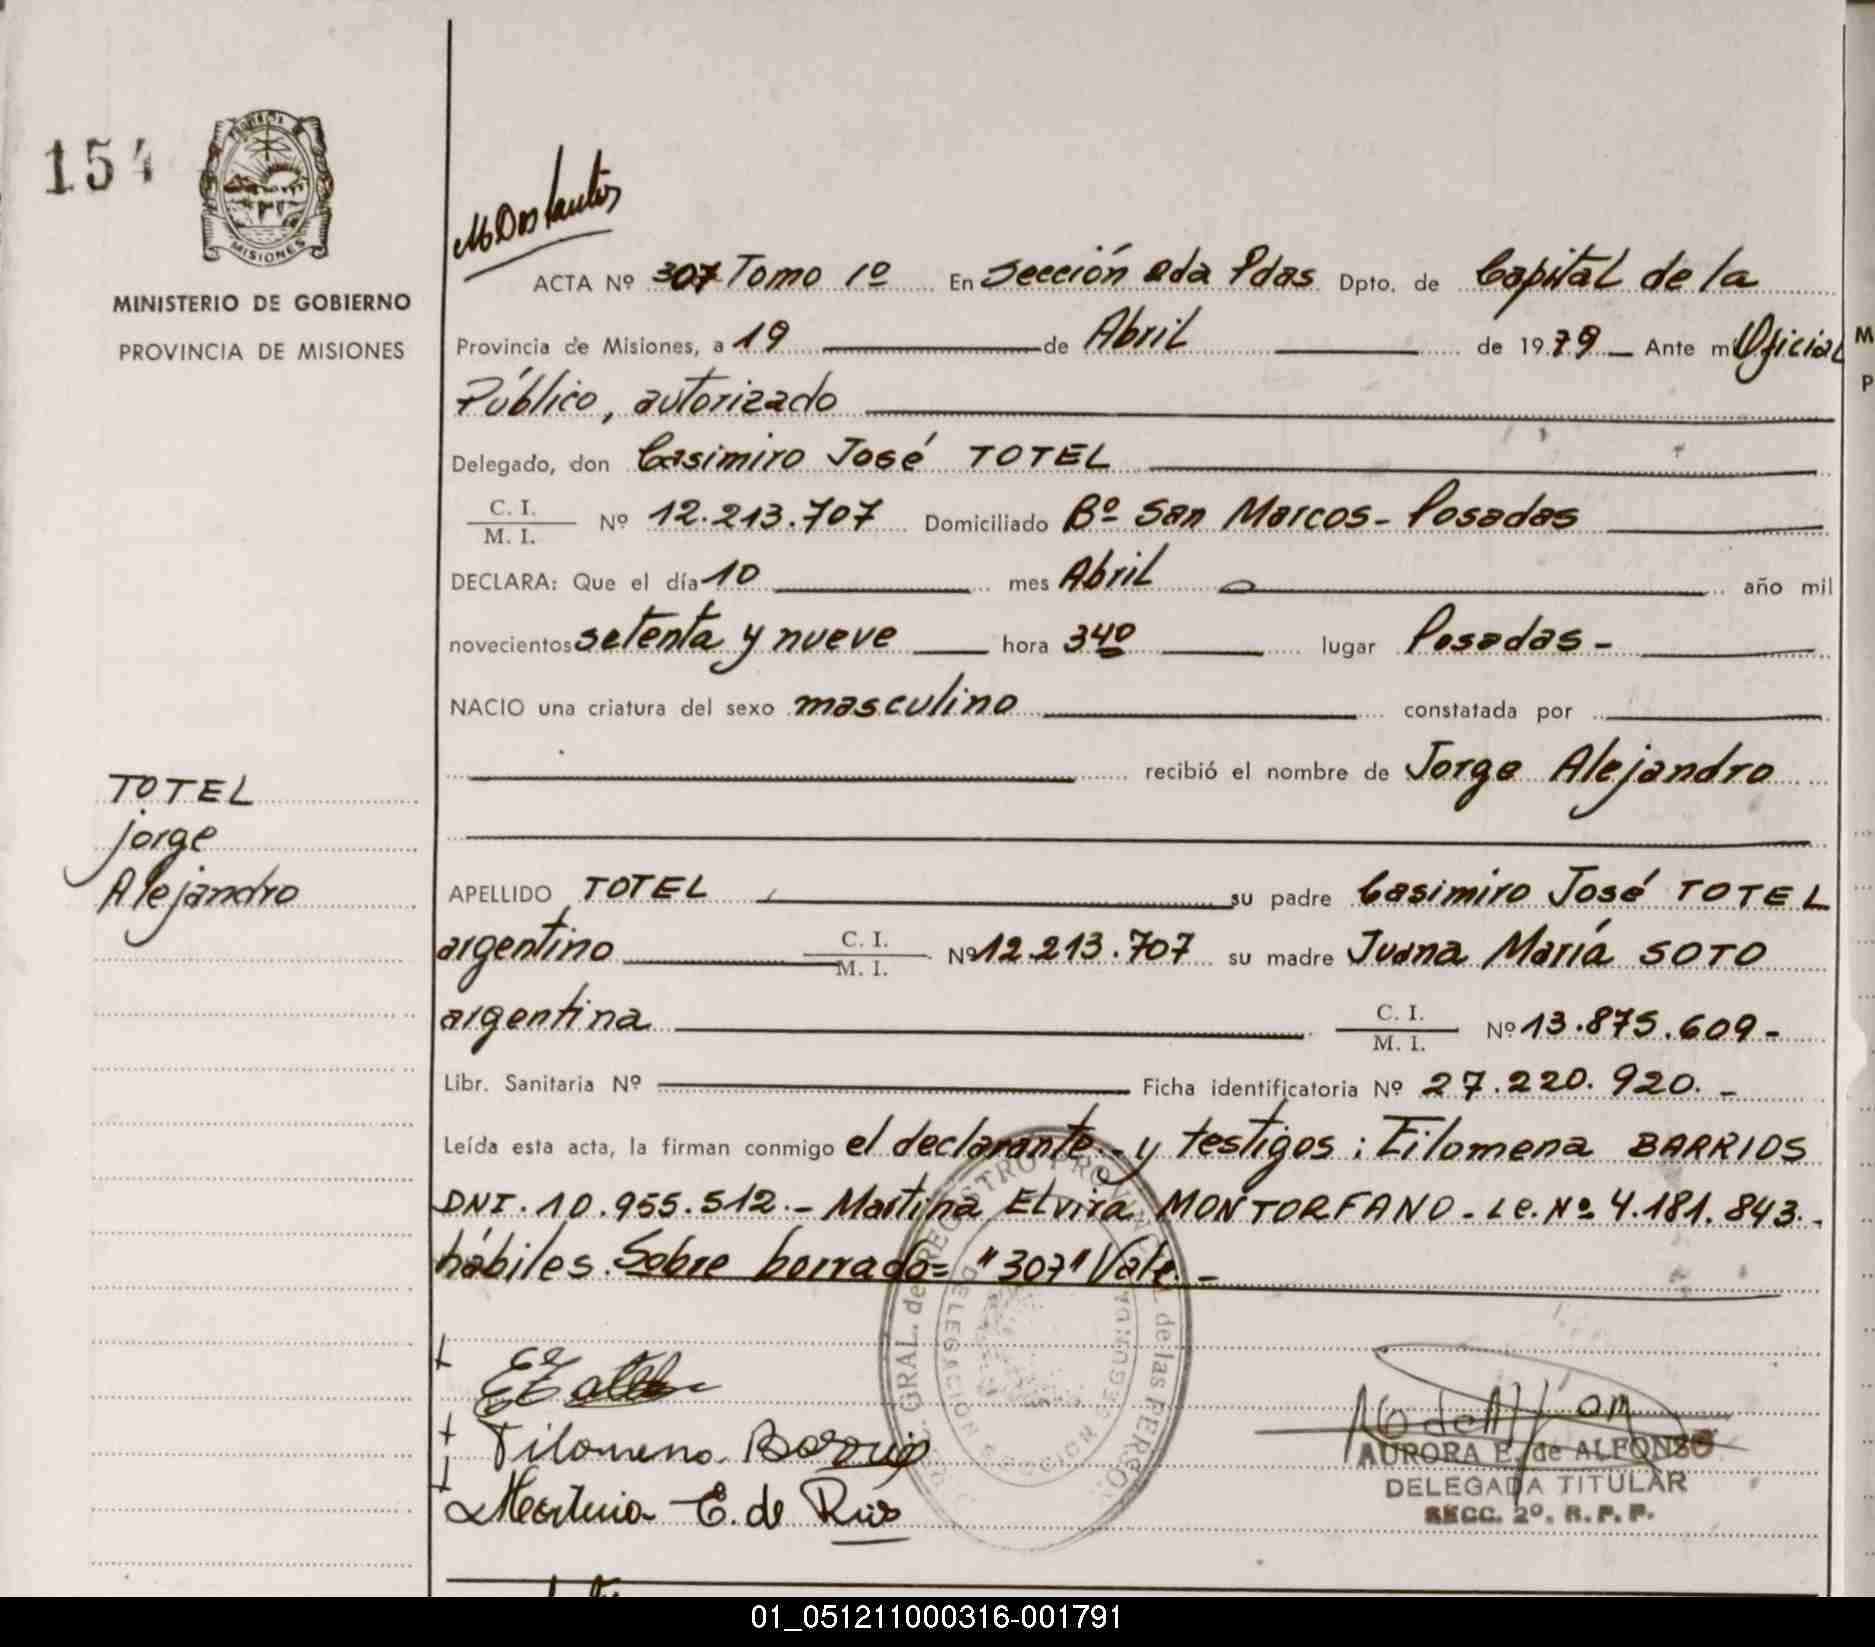 154
PROVINCIA
MISIONES
MINISTERIO DE GOBIERNO
PROVINCIA DE MISIONES
ACTA Nº 307 Tomo 1º En Sección 2da Pdas Dpto. de Capital de la
Provincia de Misiones, a 19 de Abril de 1979 Ante mi Oficial
Público, autorizado
Delegado, don Casimiro José TOTEL
C. I.
M. I. Nº 12.213.707 Domiciliado Bº San Marcos - Posadas
DECLARA: Que el día 10 mes Abril año mil
novecientos setenta y nueve hora 340 lugar Posadas -
NACIO una criatura del sexo masculino constatada por
recibió el nombre de Jorge Alejandro
TOTEL
jorge
Alejandro
APELLIDO TOTEL su padre Casimiro José TOTEL
argentino C. I. M. I. Nº 12.213.707 su madre Juana María SOTO
argentina C. I. M. I. Nº 13.875.609 -
Libr. Sanitaria Nº Ficha identificatoria Nº 27.220.920. -
Leída esta acta, la firman conmigo el declarante.- y testigos : Filomena BARRIOS
DNI. 10.955.512.- Martina Elvira MONTORFANO - L.C. Nº 4.181.843.-
hábiles. Sobre borrado= "307" Vale. -
GRAL. de REGISTRO PROVINCIAL de las PERSO
DELEGACION SECCION SEGUNDA
Filomena Barrios
Martina E. de Rios
AURORA E. de ALFONSO
DELEGADA TITULAR
SECC. 2º. R. P. P.
01_051211000316-001791